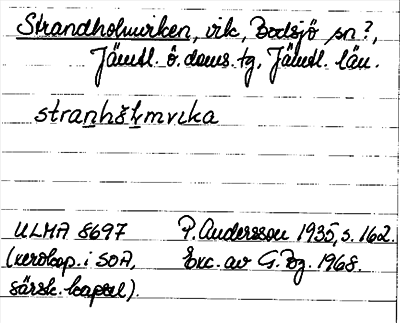 Strandholmviken, vik, Bodsjö sn?,
Jämtl. ö. doms. tg, Jämtl. län.
stranhŏlmvıka
ULMA 8697 P. Andersson 1935, s. 162.
(xerokop. i SOA, Exc. av G. Bg. 1968.
särsk. kapsel).